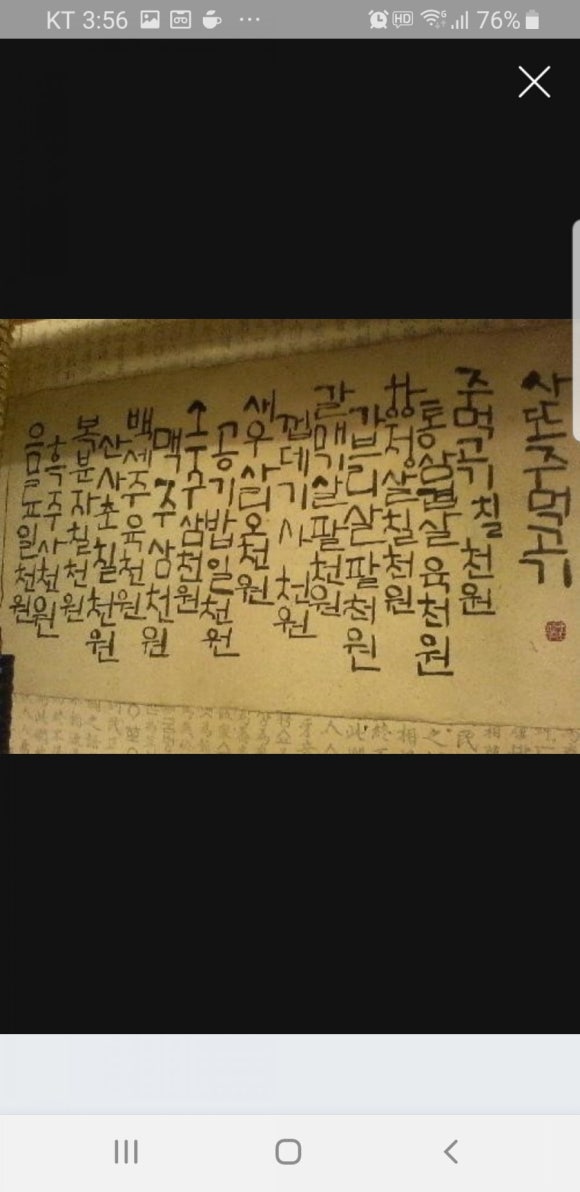 KT 3:56 HD 6 76%
사또주먹고기
주먹고기 칠천원
통삼겹살 육천원
항정살 칠천원
가브리살 팔천원
갈매기살 팔천원
껍데기 사천원
새우살 오천원
공기밥 일천원
소주 삼천원
맥주 삼천원
백세주 육천원
산사춘 칠천원
복분자 칠천원
사천원
일천원